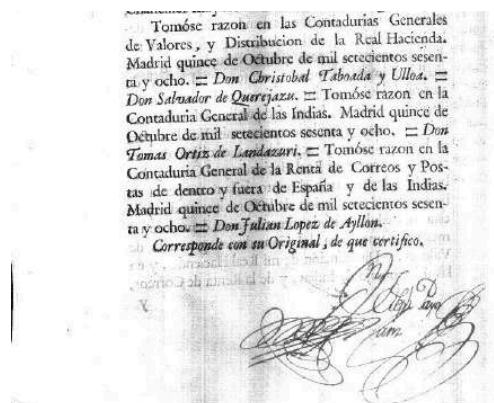 Tomóse razon en las Contadurias Generales
de Valores, y Distribucion de la Real Hacienda.
Madrid quince de Octubre de mil setecientos sesen-
ta y ocho. = Don Christobal Taboada y Ulloa. =
Don Salvador de Querejazu. = Tomóse razon en la
Contaduria General de las Indias. Madrid quince de
Octubre de mil setecientos sesenta y ocho. = Don
Tomas Ortiz de Landazuri. = Tomóse razon en la
Contaduria General de la Renta de Correos y Pos-
tas de dentro y fuera de España y de las Indias.
Madrid quince de Octubre de mil setecientos sesen-
ta y ocho. = Don Julian Lopez de Ayllon.
Corresponde con su Original, de que certifico.